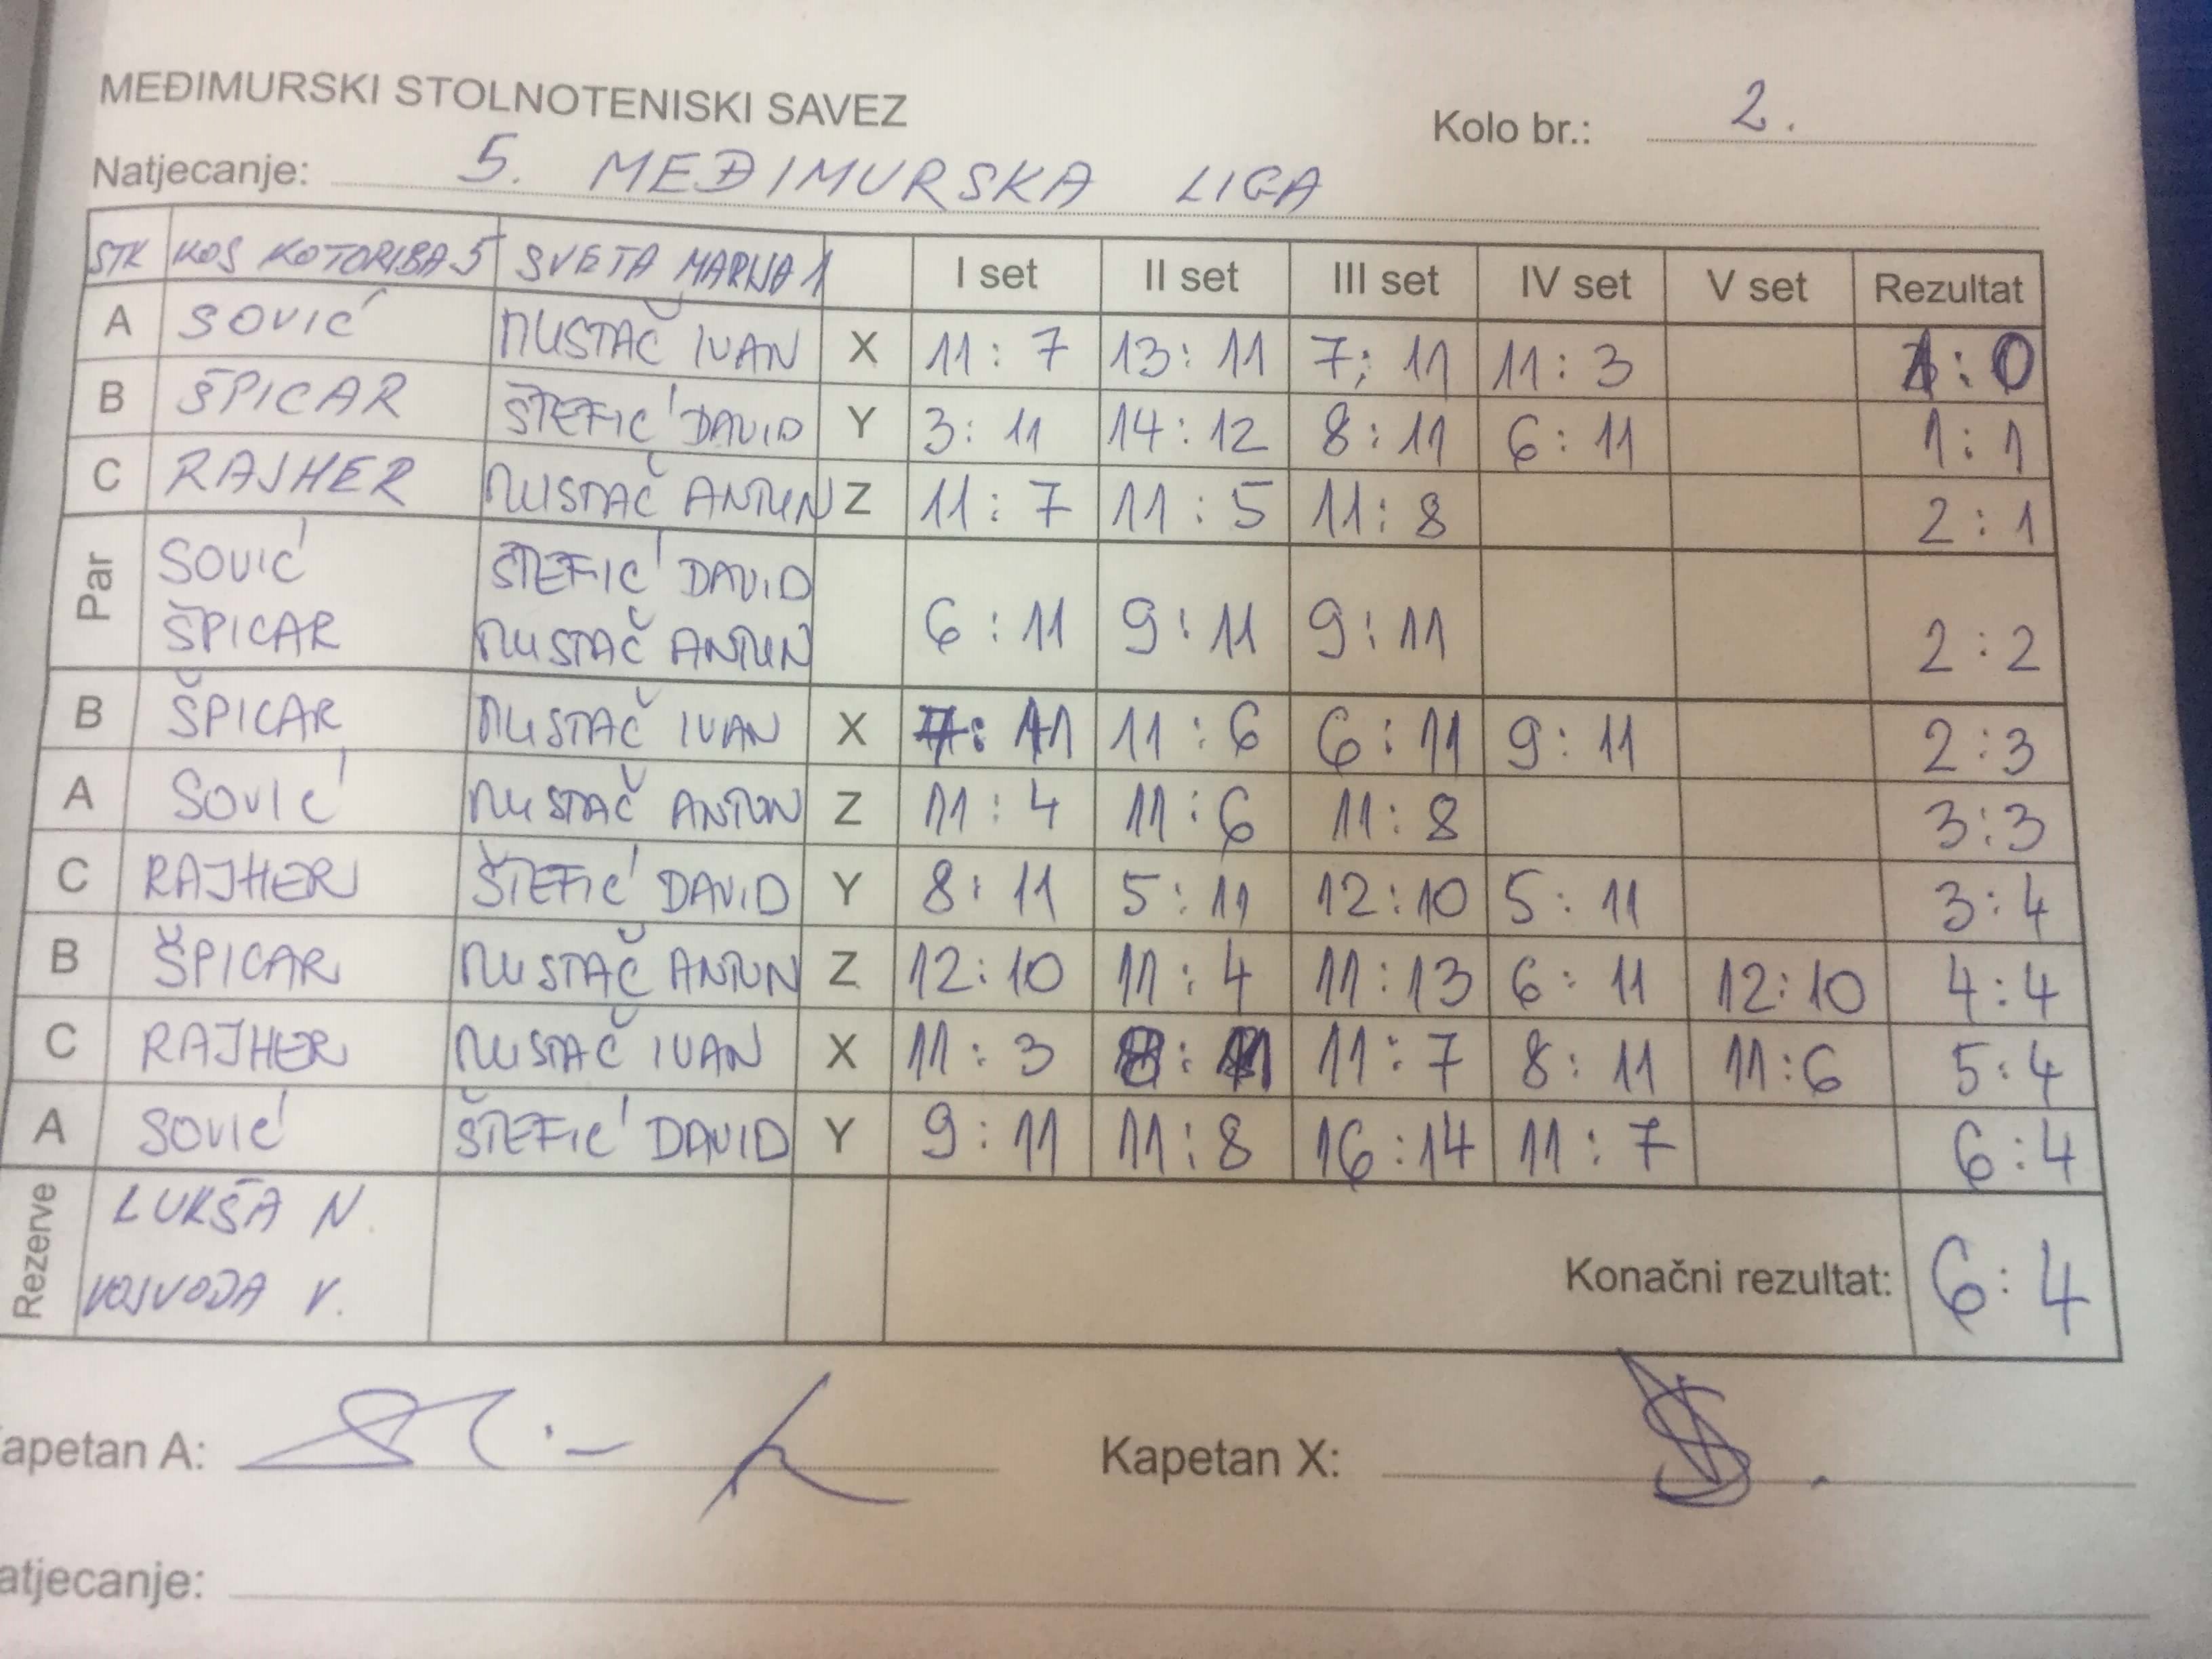 MEĐIMURSKI STOLNOTENISKI SAVEZ
Kolo br.: 2.
Natjecanje: 5. MEĐIMURSKA LIGA
STK KOS KOTORIBA 5 SVETA MARIJA 1 I set II set III set IV set V set Rezultat
A SOVIĆ MUSTAČ IVAN X 11 : 7 13 : 11 7 : 11 11 : 3 1 : 0
B ŠPICAR ŠTEFIĆ DAVID Y 3 : 11 14 : 12 8 : 11 6 : 11 1 : 1
C RAJHER MUSTAČ ANTUN Z 11 : 7 11 : 5 11 : 8 2 : 1
Par
SOVIĆ ŠTEFIĆ DAVID
ŠPICAR MUSTAČ ANTUN 6 : 11 9 : 11 9 : 11 2 : 2
B ŠPICAR MUSTAČ IVAN X 7 : 11 11 : 6 6 : 11 9 : 11 2 : 3
A SOVIĆ MUSTAČ ANTUN Z 11 : 4 11 : 6 11 : 8 3 : 3
C RAJHER ŠTEFIĆ DAVID Y 8 : 11 5 : 11 12 : 10 5 : 11 3 : 4
B ŠPICAR MUSTAČ ANTUN Z 12 : 10 11 : 4 11 : 13 6 : 11 12 : 10 4 : 4
C RAJHER MUSTAČ IVAN X 11 : 3 8 : 11 11 : 7 8 : 11 11 : 6 5 : 4
A SOVIĆ ŠTEFIĆ DAVID Y 9 : 11 11 : 8 16 : 14 11 : 7 6 : 4
Rezerve
LUKŠA N.
VOJVODA V.
Konačni rezultat: 6 : 4
apetan A: Kapetan X:
atjecanje: